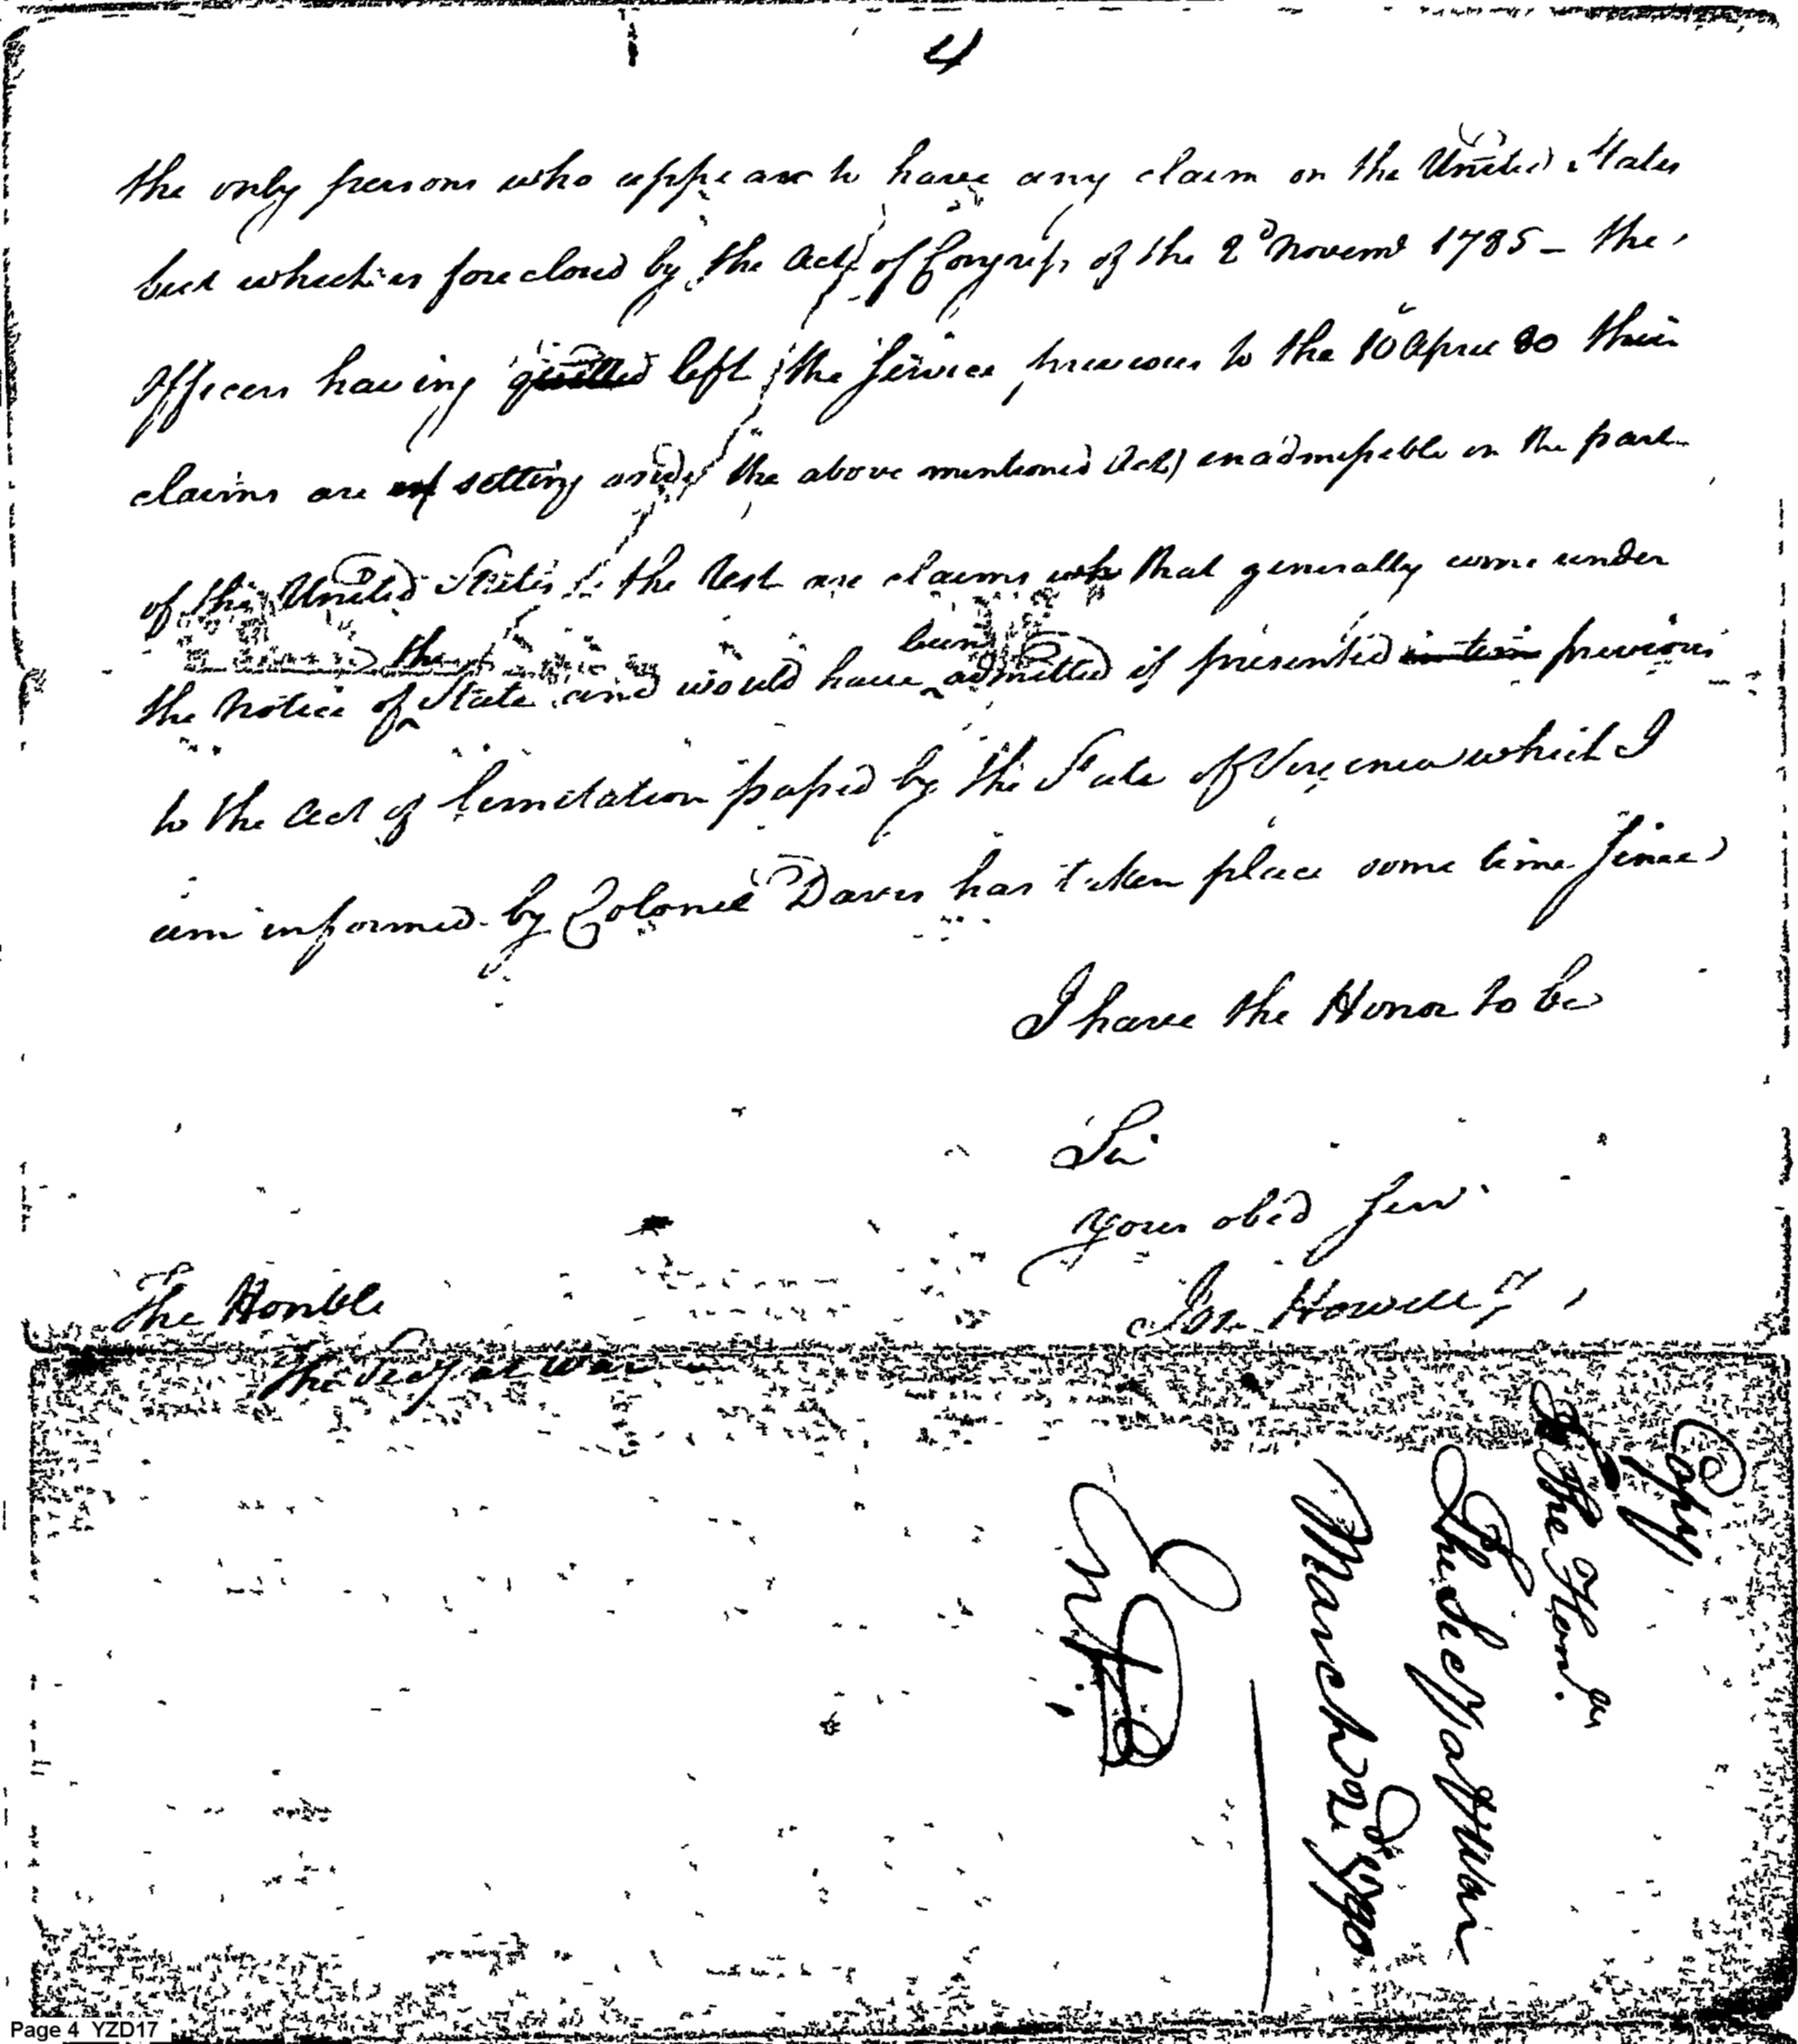 4
the only persons who appear to have any claim on the United States
but which is foreclosed by the Act of Congress of the 2d Novemr 1785 – the
Officers having quitted left the Service previous to the 10 April 80 their
claims are setting aside the above mentioned Act) inadmissible on the part
of the United States the rest are claims wh that generally come under
the
been
the notice of State and would have admitted if presented in time previous
to the Act of limitation passed by the State of Virginia which I
am informed by Colonel Davis has taken place some time since
I have the Honor to be
Sir
your obed Serv
Jos. Howell
The Honble
The Secy at War
Copy
To The Honble
The Secy at War
March 2d 1790
Entd
Page 4 YZD17